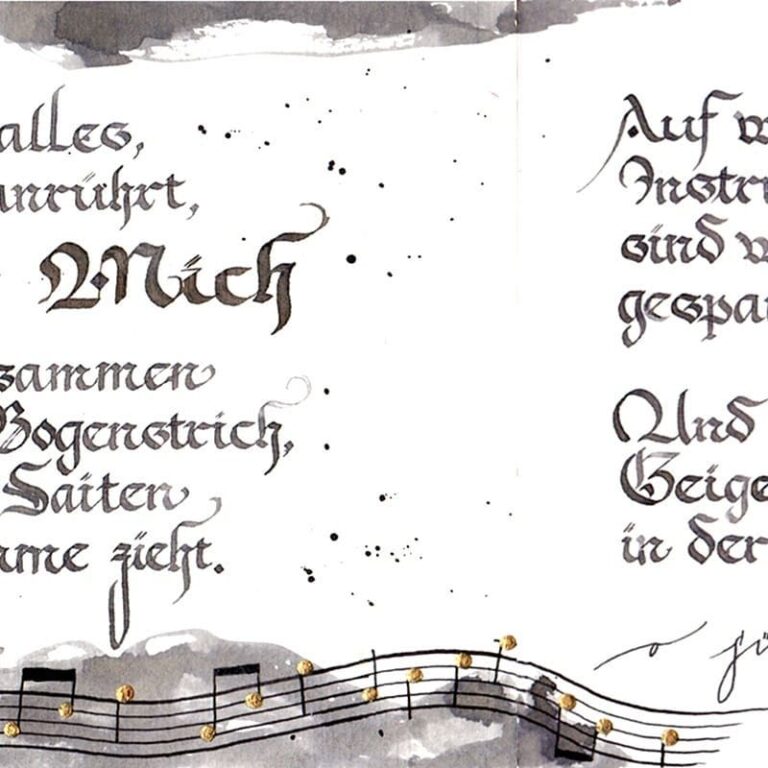 alles,
anrührt,
Mich
sammen
Bogenstrich,
Saiten
mme zieht.
Auf w
Instru
sind w
gespan
Und
Geige
in der
o sü